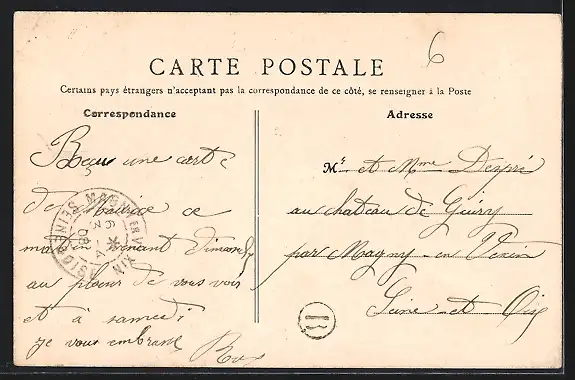 6
CARTE POSTALE
Certains pays étrangers n'acceptant pas la correspondance de ce côté, se renseigner à la Poste
Correspondance
Adresse
Reçu une carte
de Maurice ce
matin venant dimanche
au plaisir de vous voir
et à samedi
je vous embrasse
Mr et Mme
au chateau de Guiry
par Magny-en Vexin
Seine-et Oise
MAGNY-EN-VEXIN
6
3-4
08
SEINE-ET-OISE
B